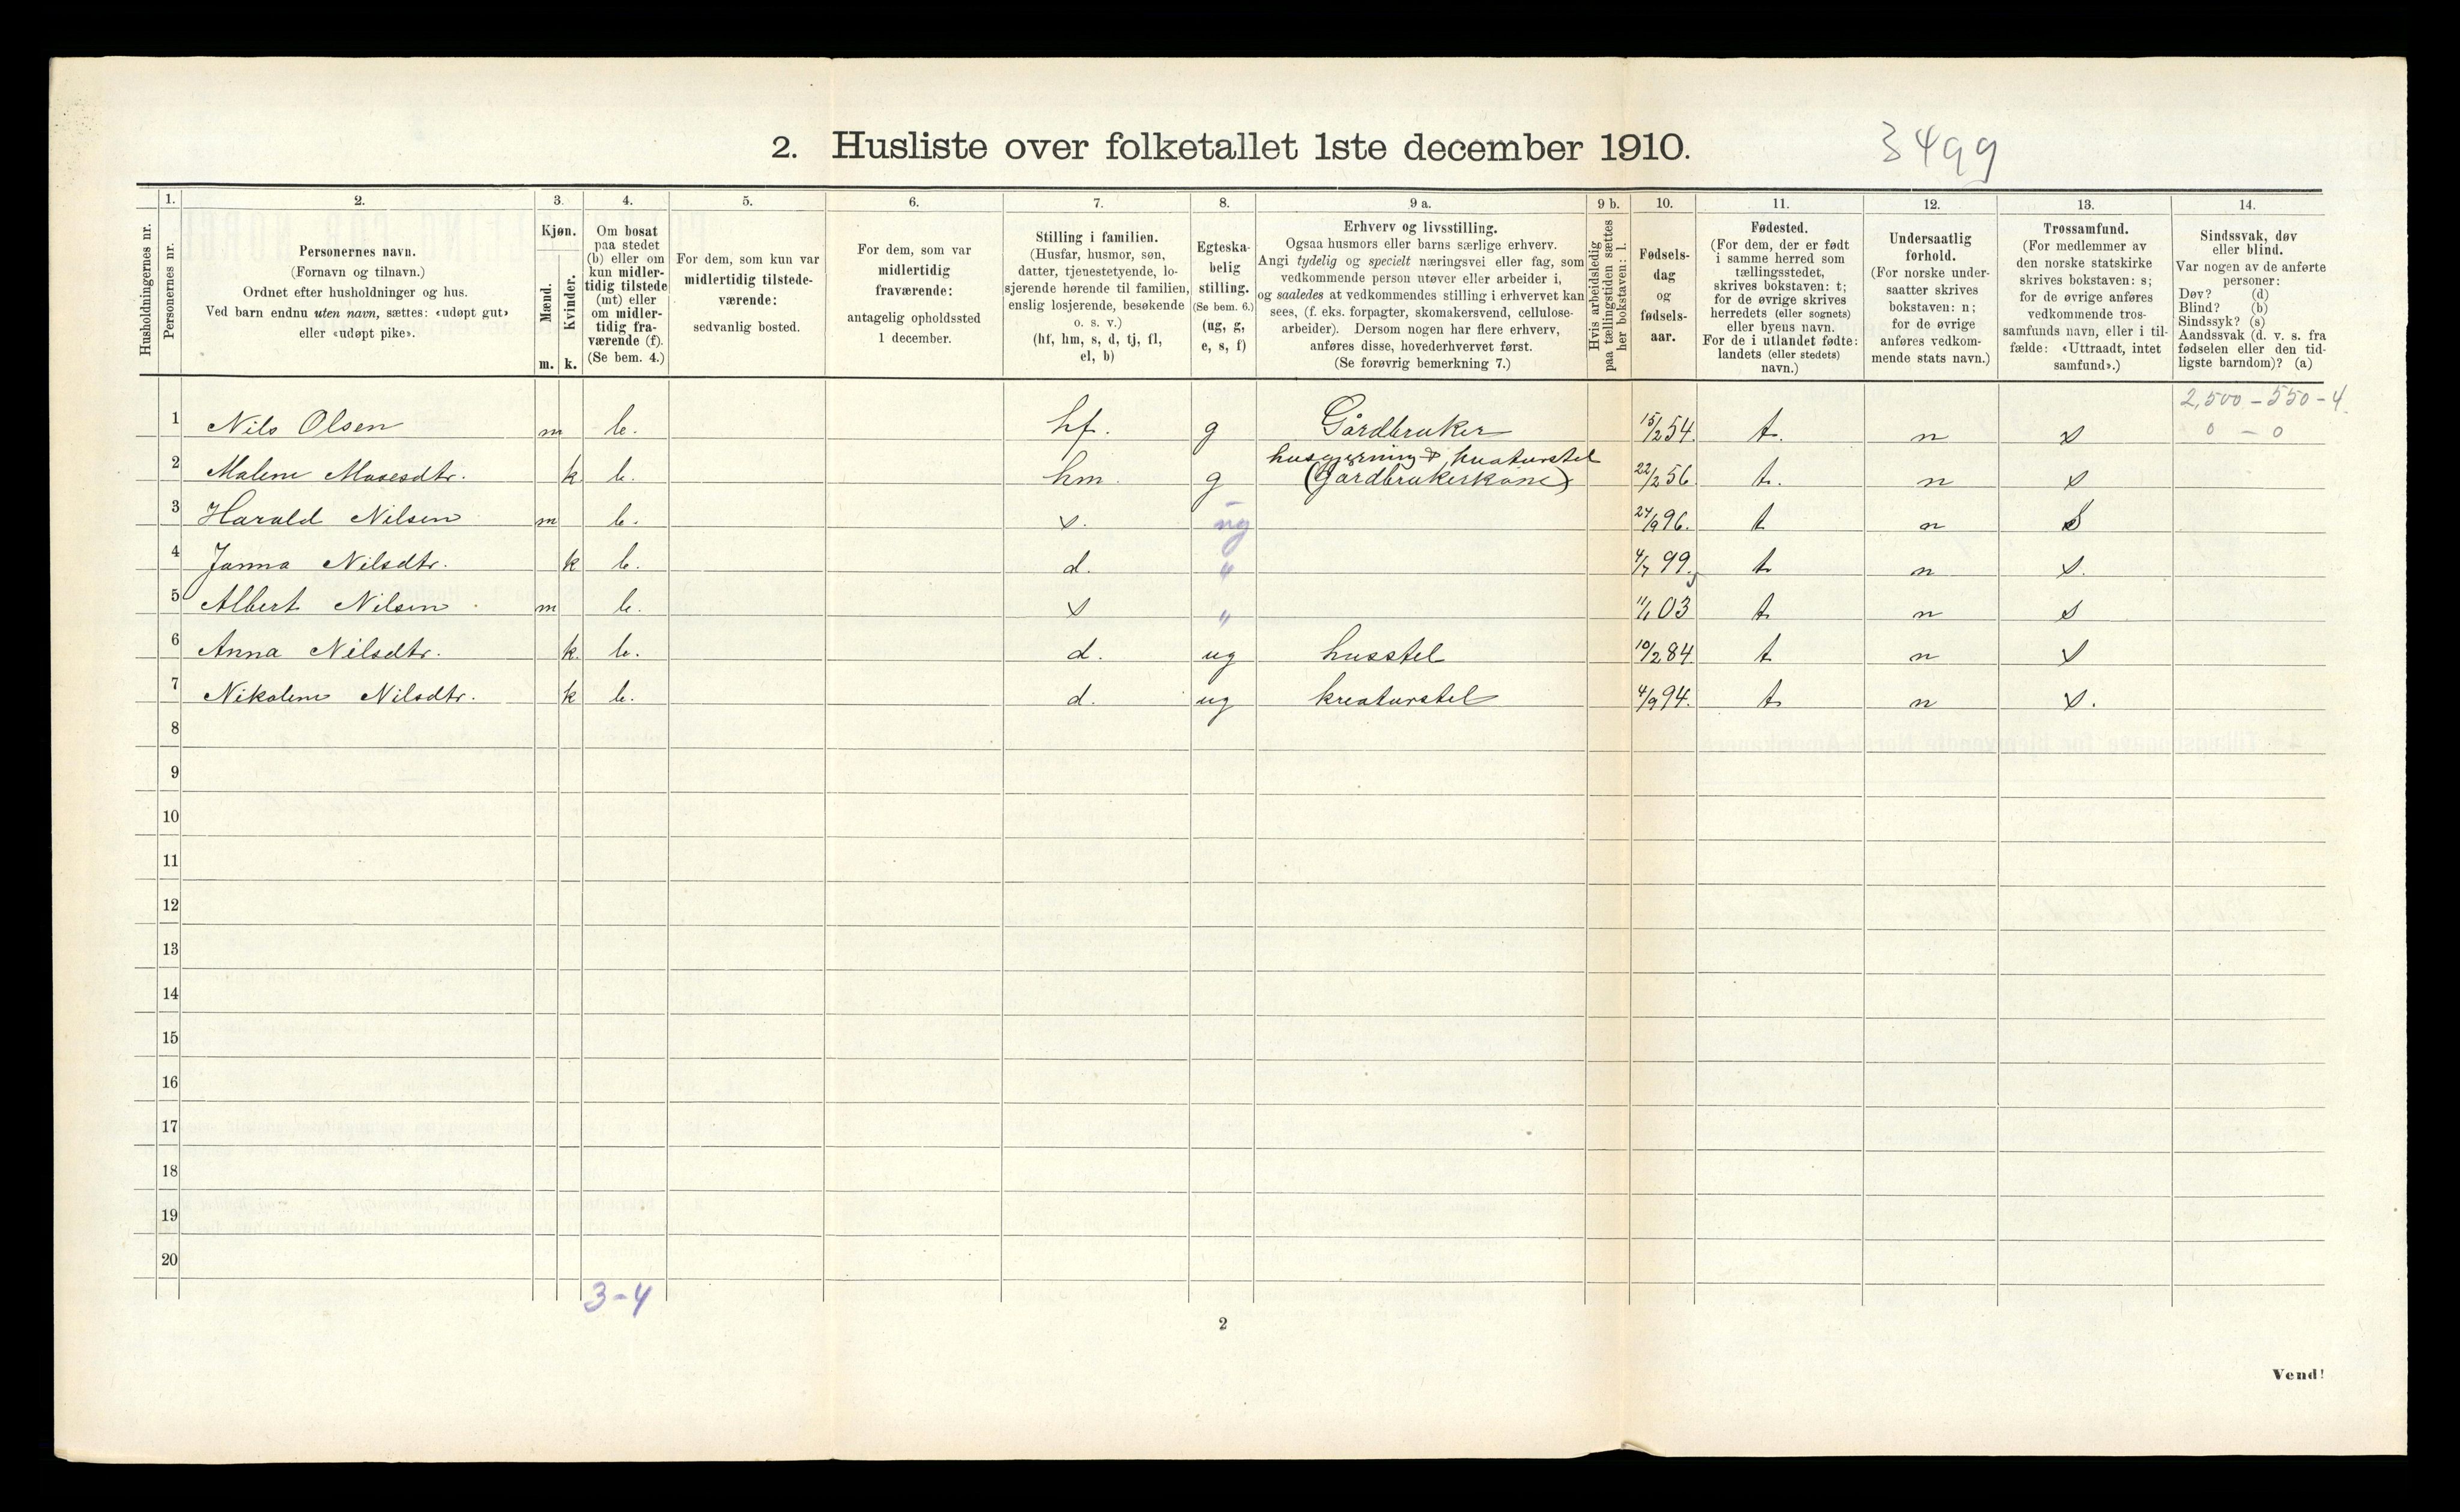 2. Husliste over folketallet 1ste december 1910.
3499
1. 2. 3. 4. 5. 6. 7. 8. 9 a. 9 b. 10. 11. 12. 13. 14.
Husholdningernes nr.
Personernes nr.
Personernes navn.
(Fornavn og tilnavn.)
Ordnet efter husholdninger og hus.
Ved barn endnu uten navn, sættes: «udøpt gut»
eller «udøpt pike».
Kjøn.
Mænd.
Kvinder.
m. k.
Om bosat
paa stedet
(b) eller om
kun midler-
tidig tilstede
(mt) eller
om midler-
tidig fra-
værende (f).
(Se bem. 4.)
For dem, som kun var
midlertidig tilstede-
værende:
sedvanlig bosted.
For dem, som var
midlertidig
fraværende:
antagelig opholdssted
1 december.
Stilling i familien.
(Husfar, husmor, søn,
datter, tjenestetyende, lo-
sjerende hørende til familien,
enslig losjerende, besøkende
o. s. v.)
(hf, hm, s, d, tj, fl,
el, b)
Egteska-
belig
stilling.
(Se bem. 6.)
(ug, g,
e, s, f)
Erhverv og livsstilling.
Ogsaa husmors eller barns særlige erhverv.
Angi tydelig og specielt næringsvei eller fag, som
vedkommende person utøver eller arbeider i,
og saaledes at vedkommendes stilling i erhvervet kan
sees, (f. eks. forpagter, skomakersvend, cellulose-
arbeider). Dersom nogen har flere erhverv,
anføres disse, hovederhvervet først.
(Se forøvrig bemerkning 7.)
Hvis arbeidsledig
paa tællingstiden sættes
her bokstaven: l.
Fødsels-
dag
og
fødsels-
aar.
Fødested.
(For dem, der er født
i samme herred som
tællingsstedet,
skrives bokstaven: t;
for de øvrige skrives
herredets (eller sognets)
eller byens navn.
For de i utlandet fødte:
landets (eller stedets)
navn.)
Undersaatlig
forhold.
(For norske under-
saatter skrives
bokstaven: n;
for de øvrige
anføres vedkom-
mende stats navn.)
Trossamfund.
(For medlemmer av
den norske statskirke
skrives bokstaven: s;
for de øvrige anføres
vedkommende tros-
samfunds navn, eller i til-
fælde: «Uttraadt, intet
samfund».)
Sindssvak, døv
eller blind.
Var nogen av de anførte
personer:
Døv? (d)
Blind? (b)
Sindssyk? (s)
Aandssvak (d. v. s. fra
fødselen eller den tid-
ligste barndom)? (a)
2,500 - 550 - 4.
0 - 0
1 Nils Olsen m b. hf. g Gårdbruker 15/2 54. t. n s
husgjerning & kreaturstel
2 Malene Mosesdtr. k b. hm. g (Gårdbrukerkone) 22/2 56 t. n s
3 Harald Nilsen m b. s. ug 24/9 96. t n s
4 Janna Nilsdtr. k b. d. " 4/7 99. t n s.
5 Albert Nilsen m b. s " 11/1 03 t n s
6 Anna Nilsdtr. k. b. d. ug husstel 10/2 84. t n s
7 Nikoline Nilsdtr. k b. d. ug kreaturstel 4/9 94. t n s.
8
9
10
11
12
13
14
15
16
17
18
19
20
3-4
2
Vend!